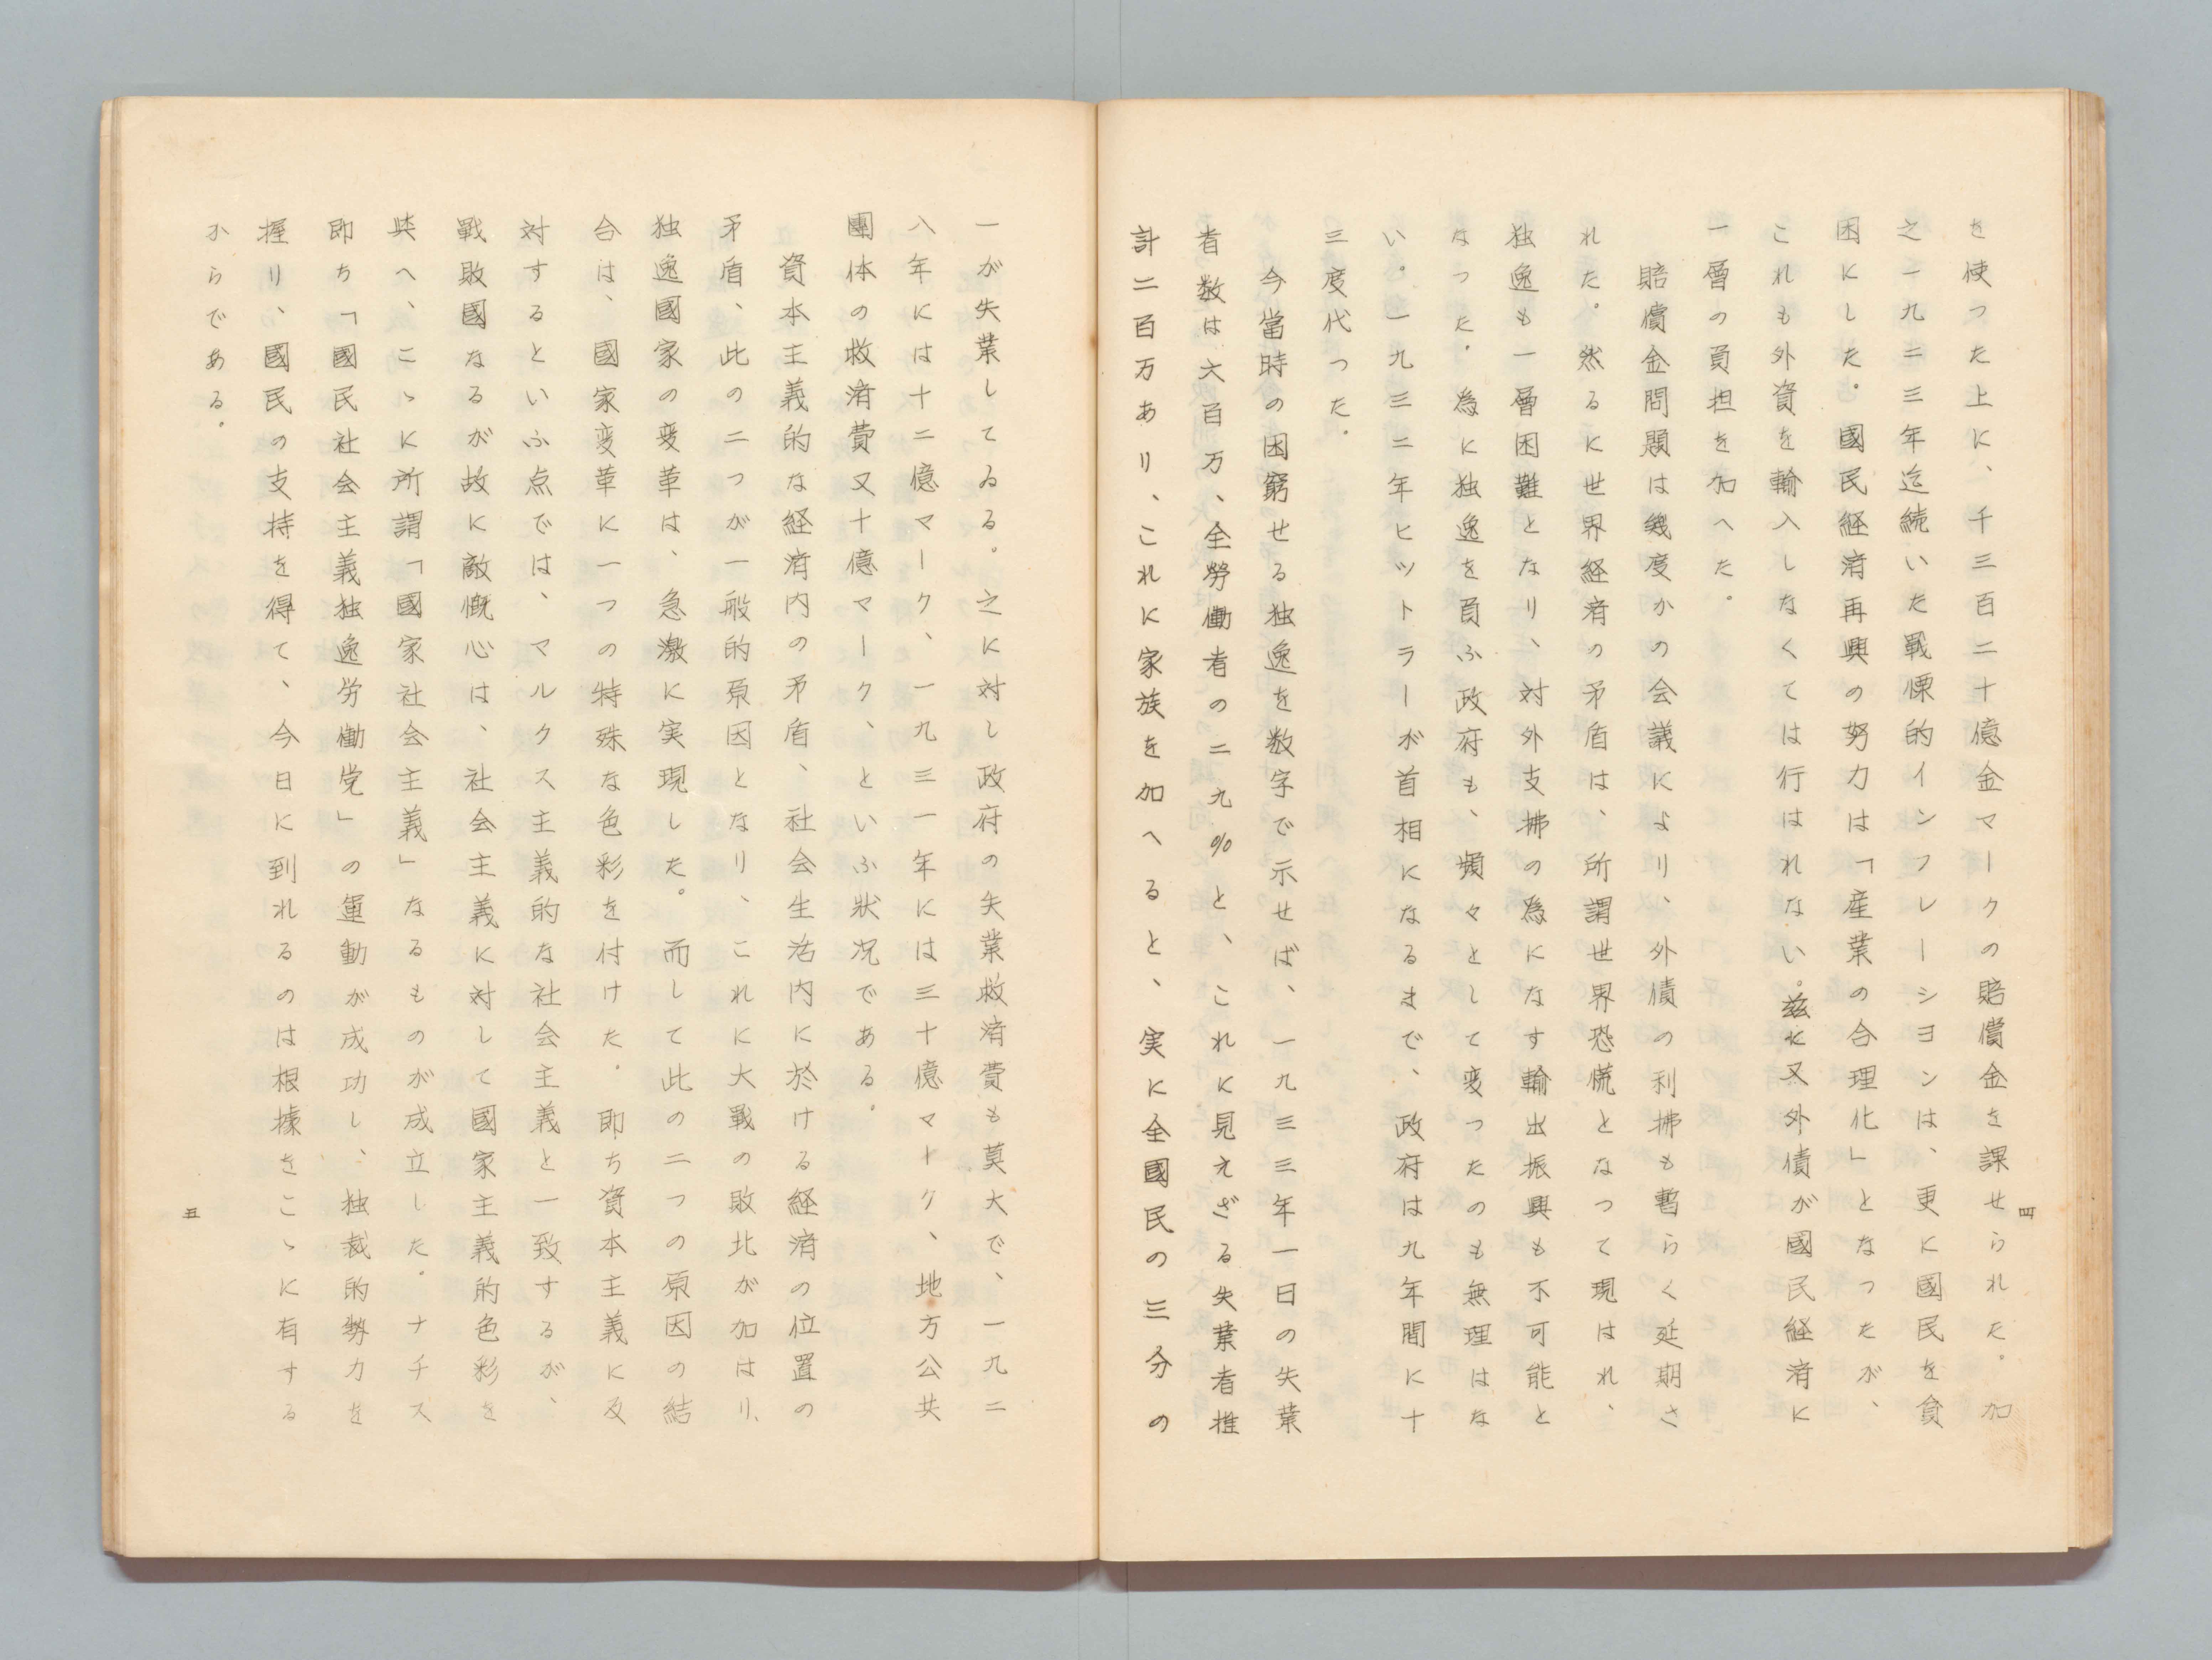 を使つた上に、千三百二十億金マークの賠償金を課せられた。加
之一九二三年迄続いた戦慄的インフレーシヨンは、更に國民を貧
困にした。國民経済再興の努力は「産業の合理化」となつたが、
これも外資を輸入しなくては行はれない。茲に又外債が國民経済に
一層の負担を加へた。
賠償金問題は幾度かの会議により、外債の利拂も暫らく延期さ
れた。然るに世界経済の矛盾は、所謂世界恐慌となつて現はれ、
独逸も一層困難となり、対外支拂の為になす輸出振興も不可能と
なつた。為に独逸を負ふ政府も、頻々として変つたのも無理はな
い。一九三二年ヒツトラーが首相になるまで、政府は九年間に十
三度代つた。
今當時の困窮せる独逸を数字で示せば、一九三三年一日の失業
者数は六百万、全勞働者の二九%と、これに見えざる失業者推
計二百万あり、これに家族を加へると、実に全國民の三分の
四
一が失業してゐる。之に対し政府の失業救済費も莫大で、一九二
八年には十二億マーク、一九三一年には三十億マーク、地方公共
團体の救済費又十億マーク、といふ狀況である。
資本主義的な経済内の矛盾、社会生活内に於ける経済の位置の
矛盾、此の二つが一般的原因となり、これに大戰の敗北が加はり、
独逸國家の変革は、急激に実現した。而して此の二つの原因の結
合は、國家変革に一つの特殊な色彩を付けた。即ち資本主義に反
対するといふ点では、マルクス主義的な社会主義と一致するが、
戰敗國なるが故に敵慨心は、社会主義に対して國家主義的色彩を
與へ、こゝに所謂「國家社会主義」なるものが成立した。ナチス
即ち「國民社会主義独逸労働党」の運動が成功し、独裁的勢力を
握り、國民の支持を得て、今日に到れるのは根據をこゝに有する
からである。
五